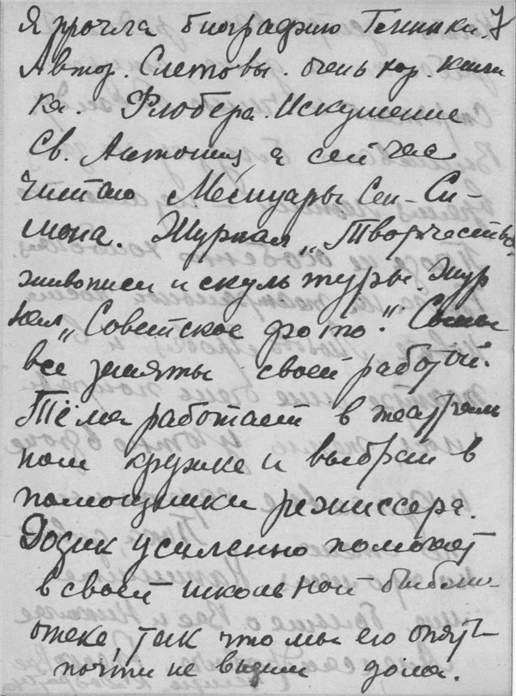 Я прочла биографию Глинки. 7
Автор. Слетовы. очень хор. книж
ка. Флобера. Искушение
Св. Антония, а сейчас
читаю Мемуары Сен-Си-
мона. Журнал „Творчество"
живописи и скульптуры. Жур
нал „Советское фото".
все заняты своей работой.
Тёма работает в театраль
ном кружке и выбран в
помощники режиссера.
усиленно помогает
в своей школьной библи-
отеке, так что мы его опять
почти не видим дома.